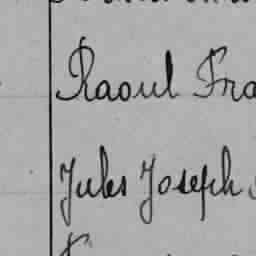 Raoul Fra
Jules Joseph